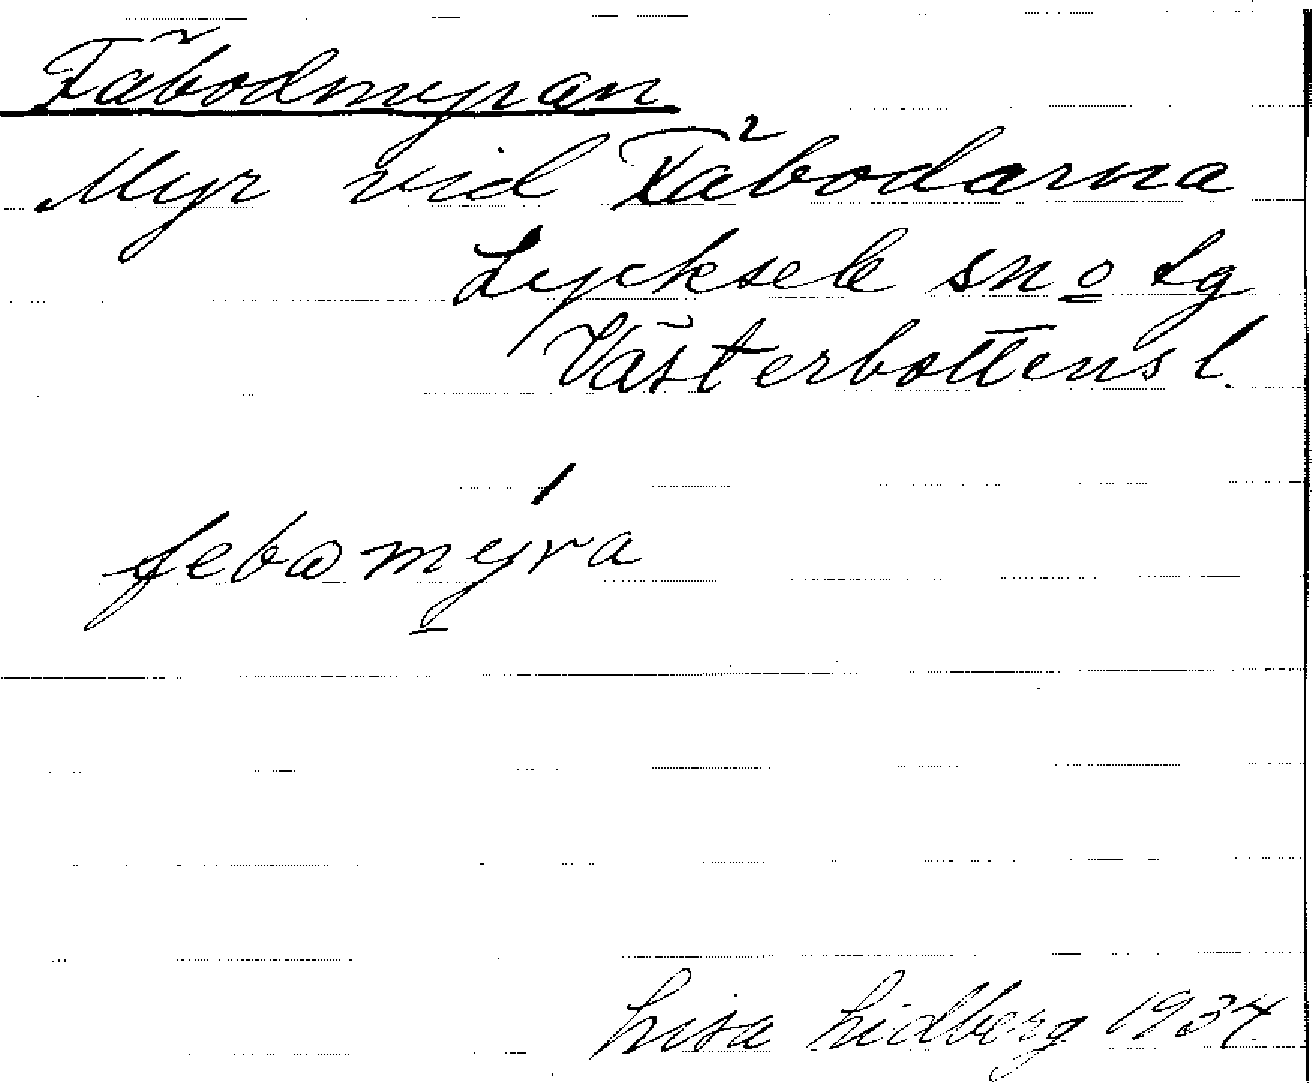 Fäbodmyran
Myr vid Fäbodarna
Lycksele sn o. Lg
Västerbottens l.
febωmý̱ra
Lisa Lidberg 1934